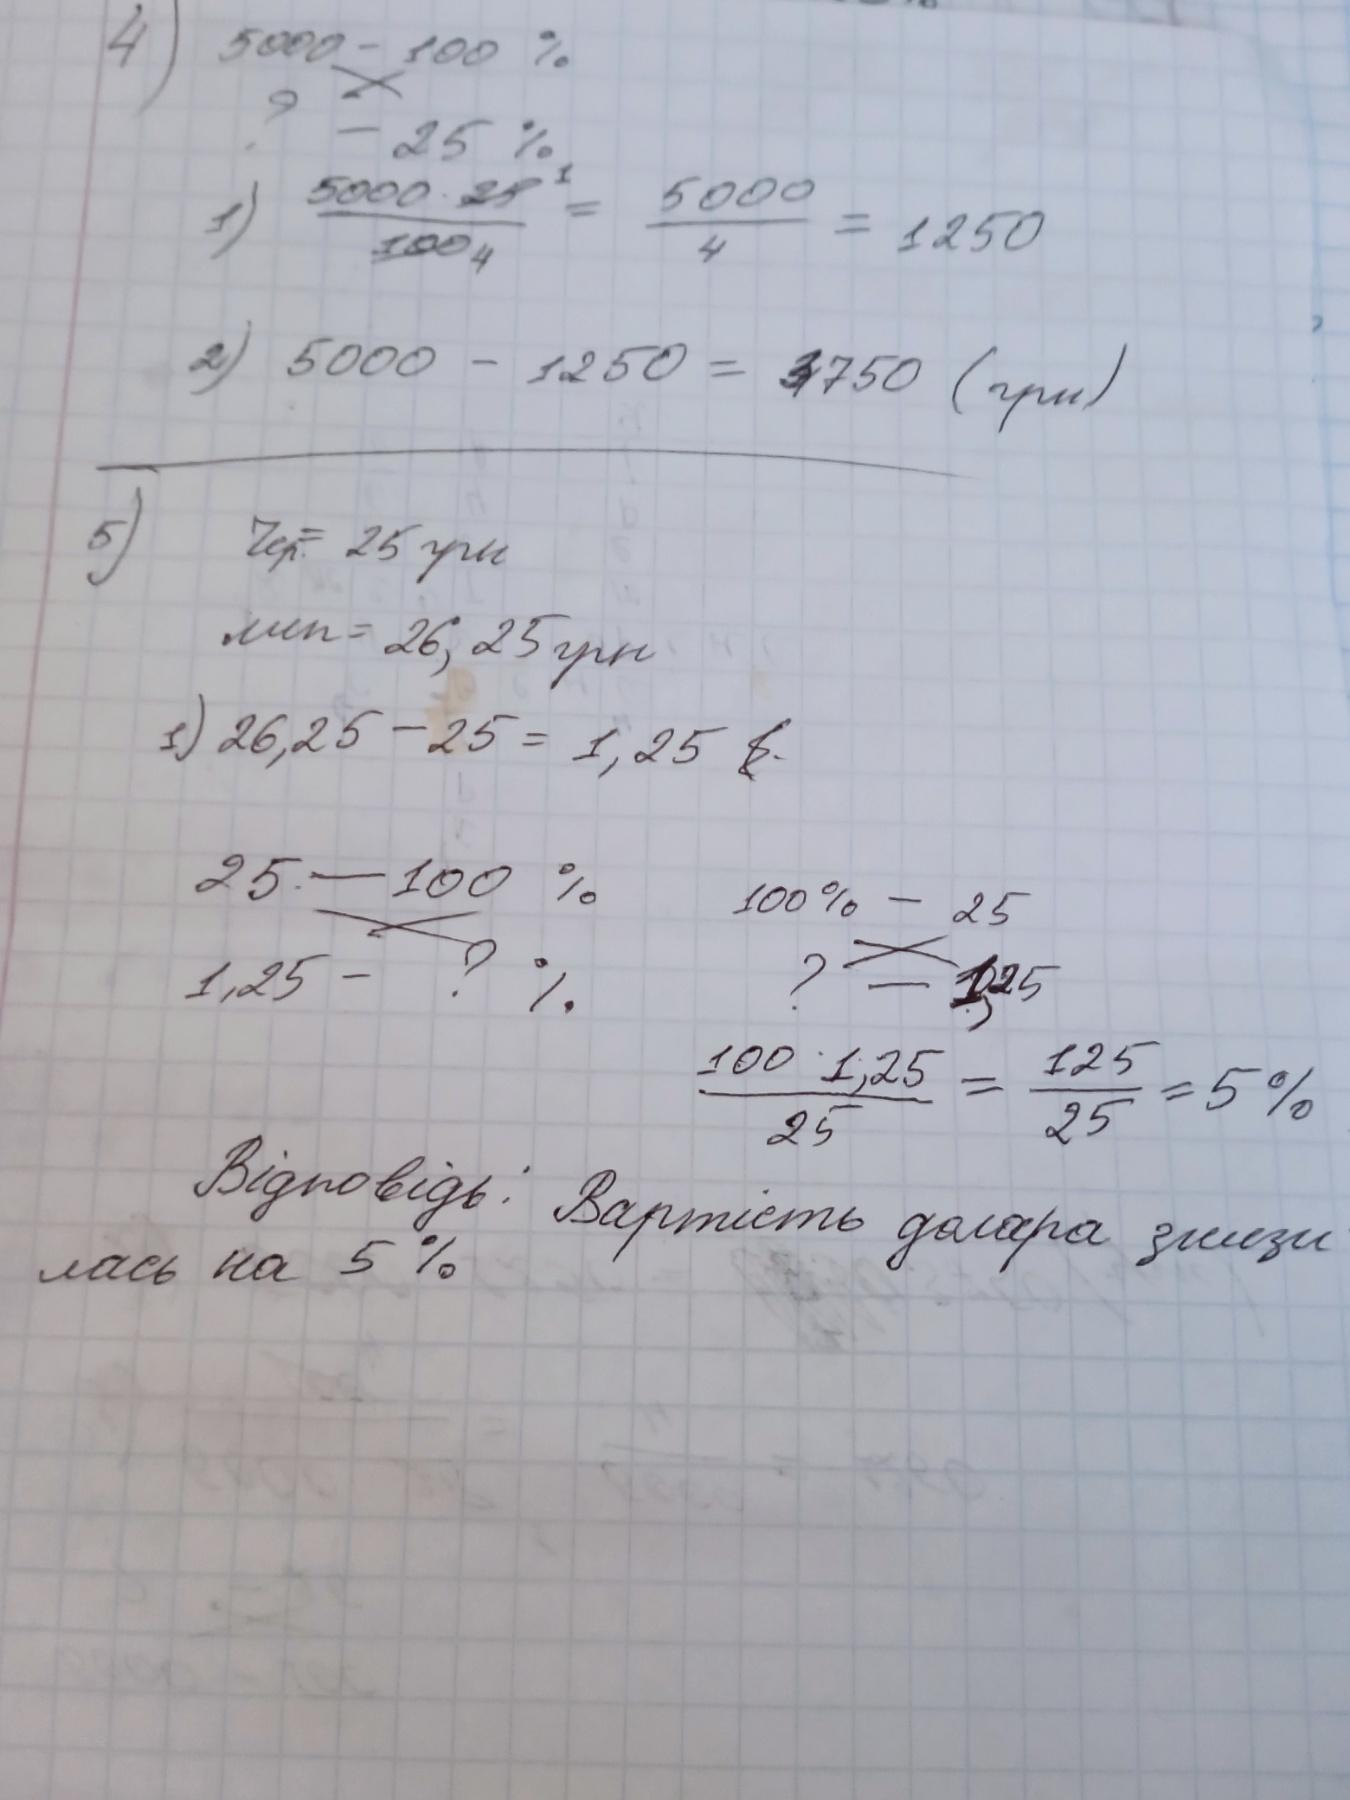 4) 5000 - 100 %
? - 25 %
1) 5000 · 25 1 / 100 4 = 5000 / 4 = 1250
2) 5000 - 1250 = 3750 (грн)
5) Чер. = 25 грн
лип = 26,25 грн
1) 26,25 - 25 = 1,25
25 — 100 %
1,25 - ? %
100% - 25
? — 1,25
100 · 1,25 / 25 = 125 / 25 = 5 %
Відповідь: Вартість долара знизи
лась на 5 %